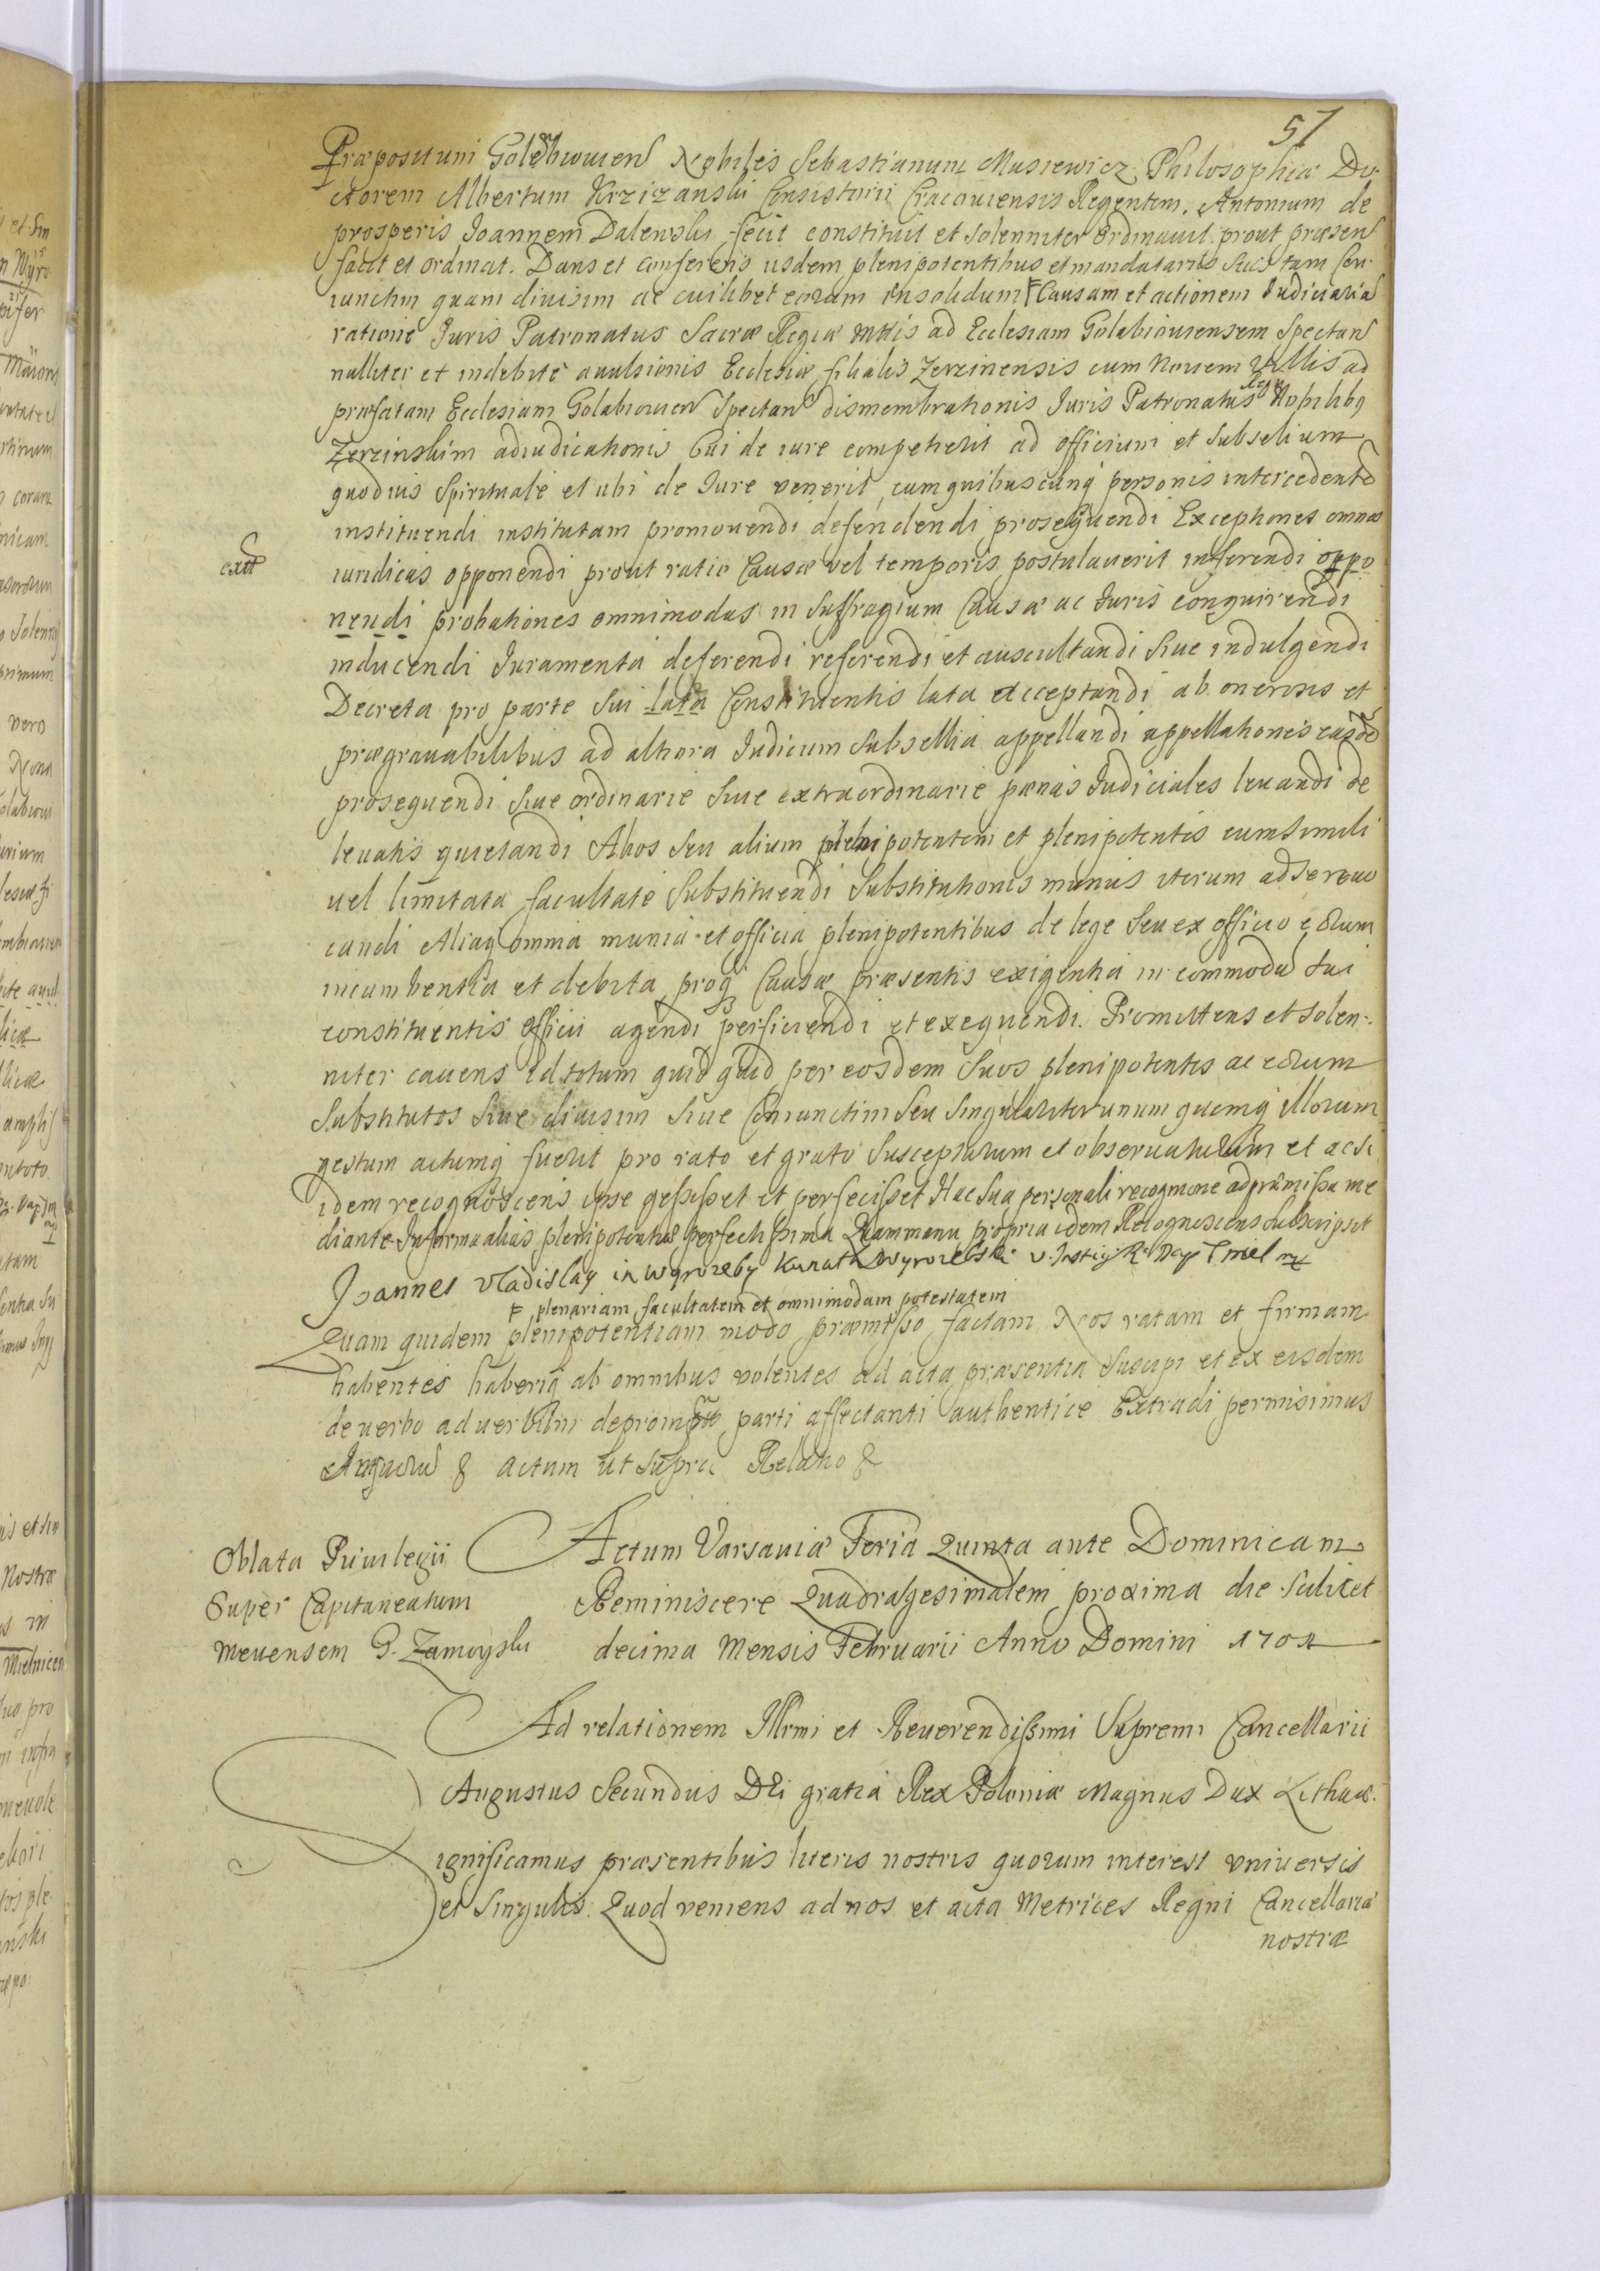 57
Præpositum Golabiouien Nobiles Sebastianum Musiewicz Philosophiæ Do-
ctorem Albertum Krzizanski Consistorii Cracouiensis Regentem. Antonium de
prosperis Joannem Dalenski fecit constituit et Solenniter ordinauit prout præsen
facit et ordinat. Dans et conferens iisdem plenipotentibus et mandatariis suis tam Con-
iunctim quam diuisim ac cuilibet eorum in solidum F Causam et actionem Judiciaria
ratione Juris Patronatus Sacræ Regiæ Mttis ad Ecclesiam Golabiouiensem Spectan
nulliter et indebite auulsionis Ecclesiæ filialis Zerzinensis cum Nouem Villis ad
præfatam Ecclesiam Golabiouien Spectan dismembrationis Juris Patronatus Regii Nobilibq
Zerzinskim adiudicationis Cui de iure competierit ad officium et Subselium
quoduis Spirituale et ubi de Jure venerit cum quibuscunq personis intercedente
instituendi institutam promouendi defendendi prosequendi Exceptiones omnes
iuridicas opponendi prout ratio Causæ vel temporis postulauerit inferendi oppo
nendi probationes omnimodas in Suffragium Causæ ac Juris conquirendi
inducendi Juramenta deferendi referendi et auscultandi siue indulgendi
Decreta pro parte Sui lata Constituentis lata acceptandi ab onerosis et
prægrauabilibus ad altiora Judicum Subsellia appellandi appellationes easde
prosequendi Siue ordinarie Siue extraordinarie pœnas Judiciales leuandi de
leuatis quietandi Alios Seu alium plenipotentem et plenipotentes cum simili
uel limitata facultate Substituendi Substitutionis munus iterum ad se reuo
candi Aliaq omnia munia et officia plenipotentibus de lege Seu ex officio eorum
incumbentia et debita proq Causæ præsentis exigentia in commodu sui
constituentis officii agendi perficiendi et exequendi. Promittens et solen-
niter cauens id totum quid quid per eosdem Suos plenipotentes ac eorum
Substitutos Siue diuisim siue Coniunctim Seu Singulariter unum quemq illorum
gestum actumq fuerit pro rato et grato Suscepturum et obseruaturum et acsi
idem recognoscens ipse gessisset et perfecisset Hac Sua personali recogmone ad præmissa me
diante In forma alias plenipotentiæ perfectissima Quam manu propria idem Recognoscens Subscripsit
Joannes Vladislaq in Wyrozeby Kunat Wyrozebski V. Instig R. Dap Tmiel mp
F plenariam facultatem et omnimodam potestatem
Quam quidem plenipotentiam modo præmisso factam Nos ratam et firmam
habentes haberiq ab omnibus volentes ad acta præsentia Suscipi et ex eisdem
de verbo ad verbum deprompta parti affectanti authentice Extradi permisimus
In quoru & actum ut supra Relatio &
Oblata Priuilegii
Super Capitaneatum
Meuensem G. Zamoyski
Actum Varsauiæ Feria Quinta ante Dominicam
Reminiscere Quadragesimalem proxima die Scilicet
decima Mensis Februarii Anno Domini 1702
Ad relationem Illrmi et Reuerendissimi Supremi Cancellarii
Augustus Secundus Dei gratia Rex Poloniæ Magnus Dux Lithuæ.
Significamus præsentibus literis nostris quorum interest vniuersis
et Singulis. Quod veniens ad nos et acta Metrices Regni Cancellariæ
nostræ